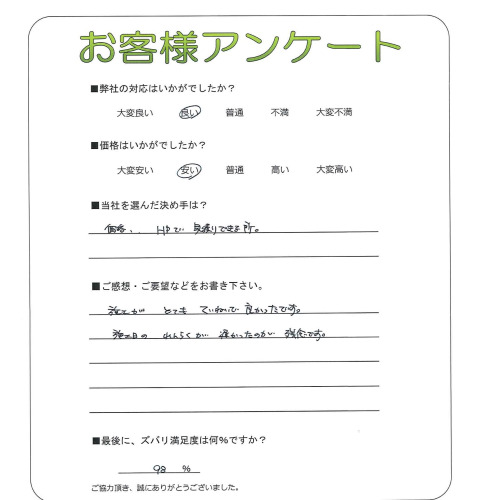 お客様アンケート
■弊社の対応はいかがでしたか？
大変良い 良い 普通 不満 大変不満
■価格はいかがでしたか？
大変安い 安い 普通 高い 大変高い
■当社を選んだ決め手は？
価格、、HPで 見積りできる所。
■ご感想・ご要望などをお書き下さい。
施工が とても ていねいで 良かったです。
施工日の れんらくが 遅かったのが 残念です。
■最後に、ズバリ満足度は何％ですか？
98 ％
ご協力頂き、誠にありがとうございました。